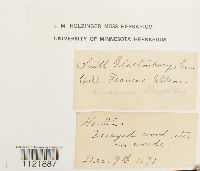 J. M. HOLZINGER MOSS HERBARIUM
UNIVERSITY OF MINNESOTA HERBARIUM
South Glastonbury, Conn.
Coll. Francis Wilson.
No. 22.
Decayed wood, etc.
in woods.
Dec. 9th 1891
1121887